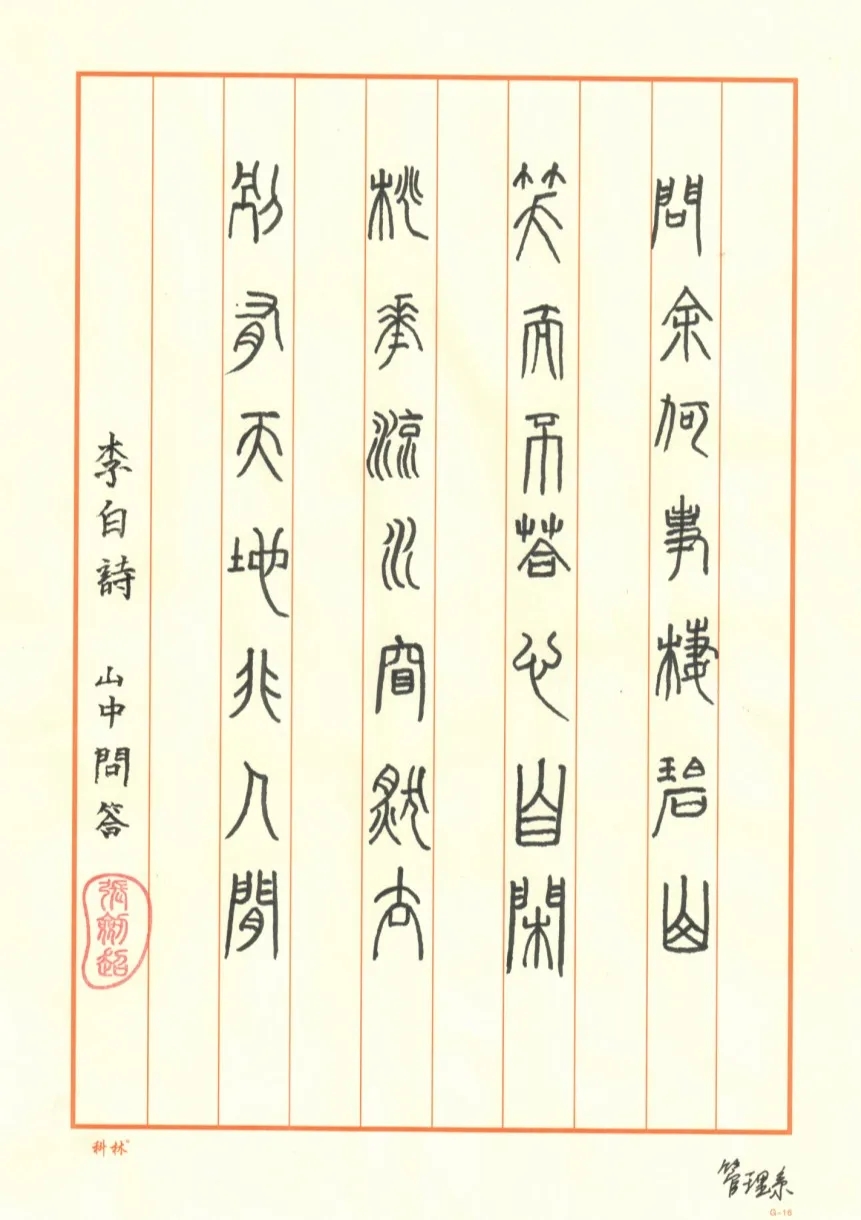 問余何事棲碧山
笑而不荅心自閑
桃華流水窅然去
別有天地非人閒
李白詩 山中問答
張劍超
科林
管理系
G-16